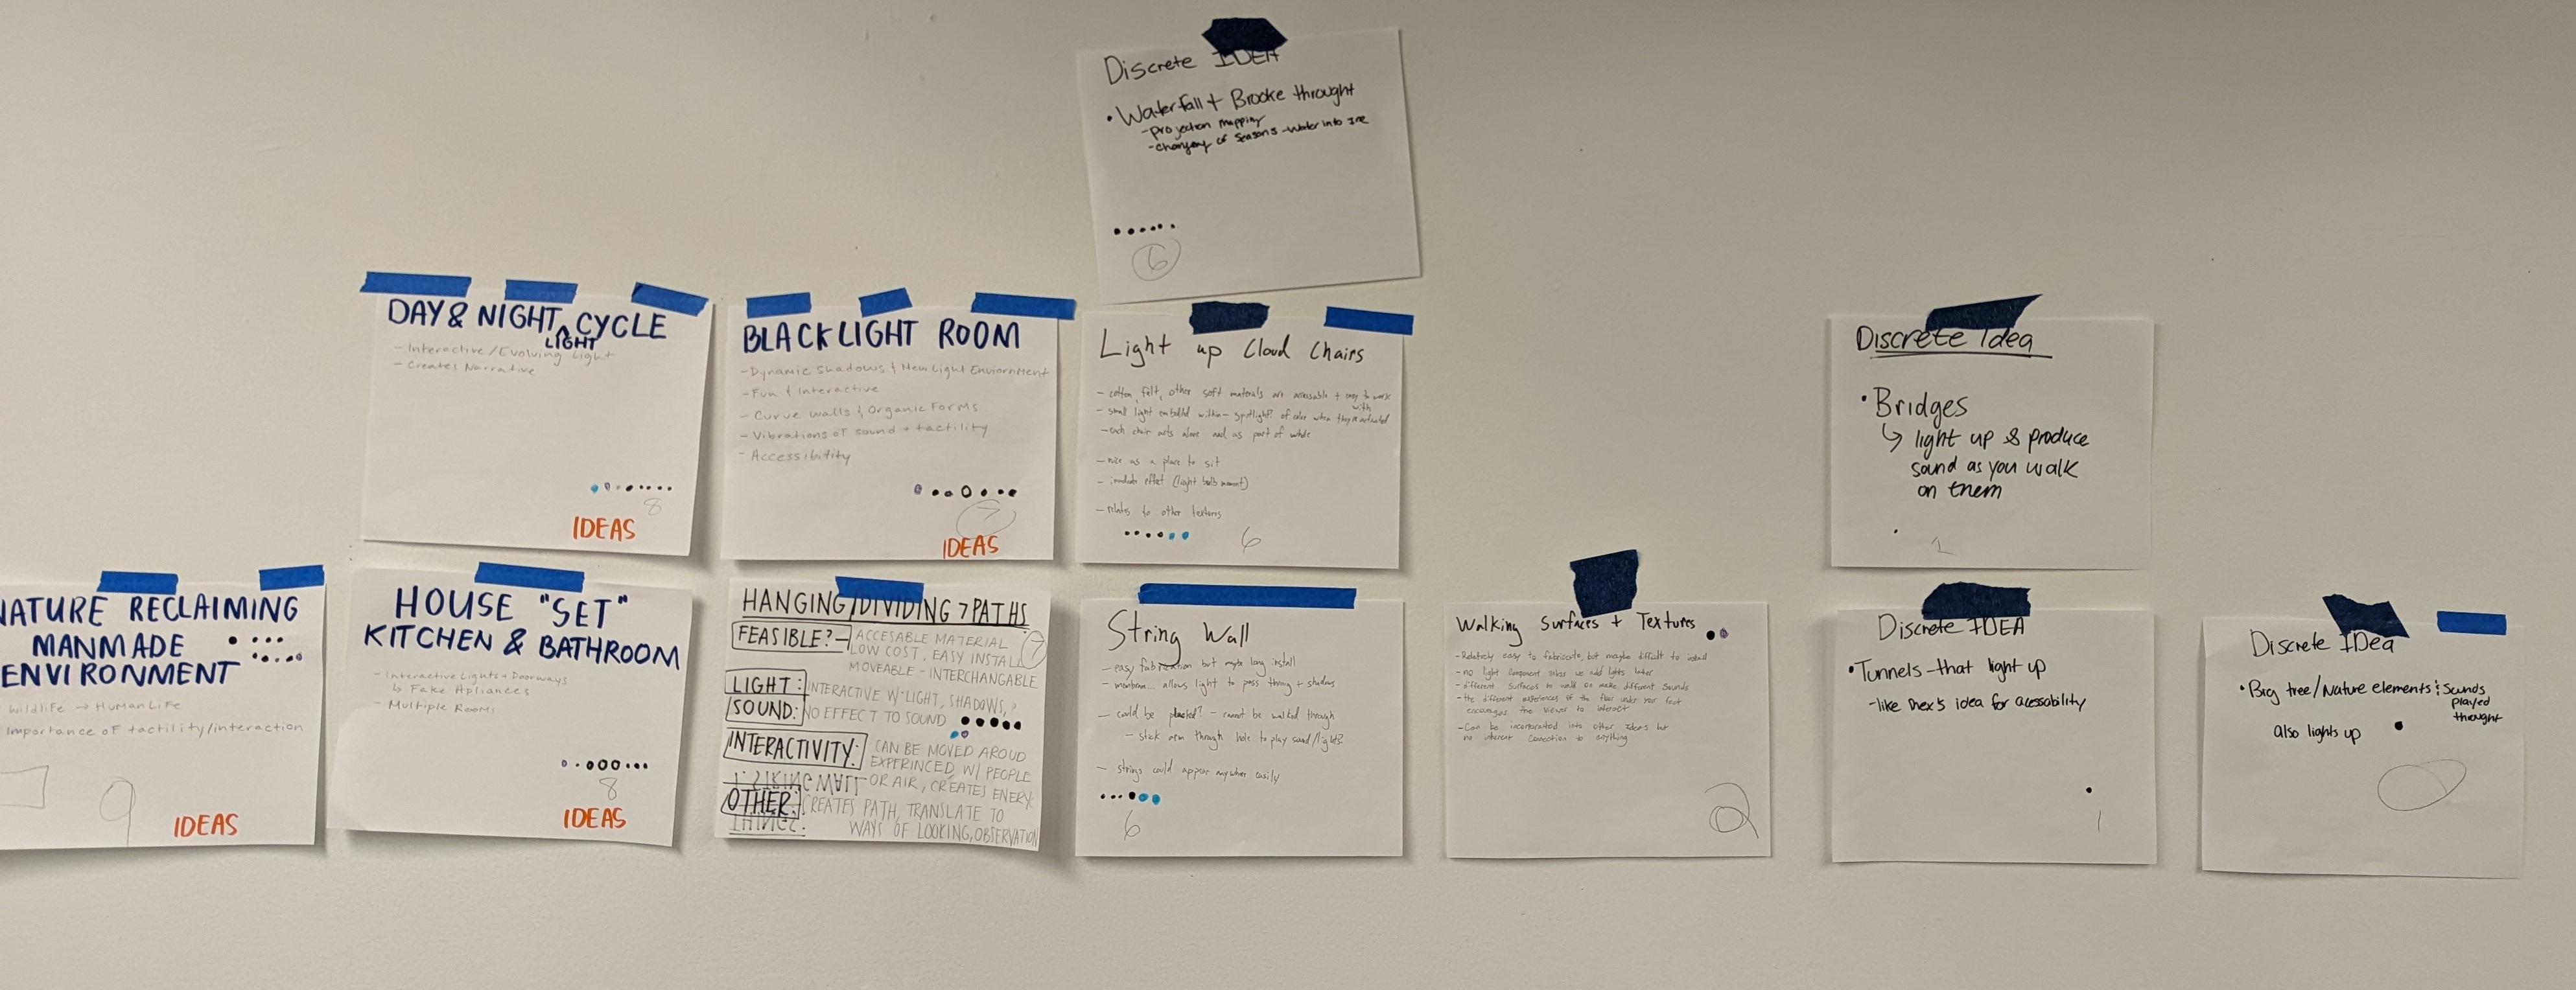 Discrete IDEA
• Waterfall + Brooke throught
- projection mapping
- changing of seasons - water into Ice
6
DAY & NIGHT CYCLE
LIGHT
- Interactive/Evolving Light
- Creates Narrative
8
IDEAS
BLACKLIGHT ROOM
- Dynamic Shadows & New Light Enviornment
- Fun & Interactive
- Curve walls & Organic Forms
- Vibrations of sound + tactility
- Accessibility
7
IDEAS
Light up Cloud Chairs
- cotton, felt, other soft materials are accessable + easy to work
with
- small light embedded within - spotlight? of color when they're activated
- each chair acts alone and as part of whole
- nice as a place to sit
- immediate effect (light bulb moment)
- relates to other textures
6
Discrete Idea
• Bridges
↳ light up & produce
sound as you walk
on them
1
NATURE RECLAIMING
MANMADE
ENVIRONMENT
wildlife → Human Life
Importance of tactility/interaction
9
IDEAS
HOUSE "SET"
KITCHEN & BATHROOM
- Interactive Lights + Doorways
↳ Fake Apliances
- Multiple Rooms
8
IDEAS
HANGING/DIVIDING > PATHS
FEASIBLE? - ACCESABLE MATERIAL
LOW COST, EASY INSTALL
MOVEABLE - INTERCHANGABLE
7
LIGHT: INTERACTIVE W/ LIGHT, SHADOWS,
SOUND: NO EFFECT TO SOUND
INTERACTIVITY: CAN BE MOVED AROUD
EXPERINCED W/ PEOPLE
OR AIR, CREATES ENERY
OTHER: CREATES PATH, TRANSLATE TO
WAYS OF LOOKING, OBSERVATION
String Wall
- easy fabrication but maybe long install
- membrane... allows light to pass throug + shadows
- could be plucked? - cannot be walked through
- stick arm through hole to play sound/lights?
- strings could appear anywhere easily
6
Walking Surfaces + Textures
- Relatively easy to fabricate, but maybe difficult to install
- no light component unless we add lights later
- different surfaces to walk on make different sounds
- the different experiences of the floor under your feet
encourages the viewer to interact
- Can be incorporated into other ideas but
no inherent connection to anything
2
Discrete IDEA
• Tunnels - that light up
- like idea for acessability
1
Discrete IDea
• Big tree/Nature elements & Sounds
played
throught
also lights up